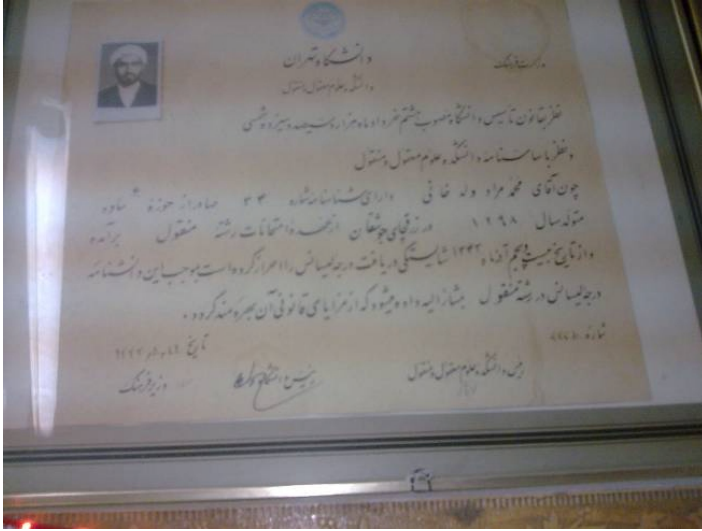 دانشگاه تهران
وزارت فرهنگ
دانشکده علوم معقول و منقول
نظر بقانون تأسیس دانشگاه مصوب هشتم خرداد ماه هزار و سیصد و سیزده شمسی
و نظر باساسنامه دانشکده علوم معقول و منقول
چون آقای محمد مراد ولد خانی دارای شناسنامه شماره ۳۳ صادر از حوزه ساوه
متولد سال ۱۲۹۸ در از عهده امتحانات رشته منقول برآمده
و از تاریخ بیست و پنجم آذرماه شایستگی دریافت درجه لیسانس را احراز کرده است بموجب این دانشنامه
درجه لیسانس در رشته منقول بمشارالیه داده میشود که از مزایای قانونی آن بهره‌مند گردد.
شماره
تاریخ
رئیس دانشکده علوم معقول و منقول
رئیس دانشگاه
وزیر فرهنگ